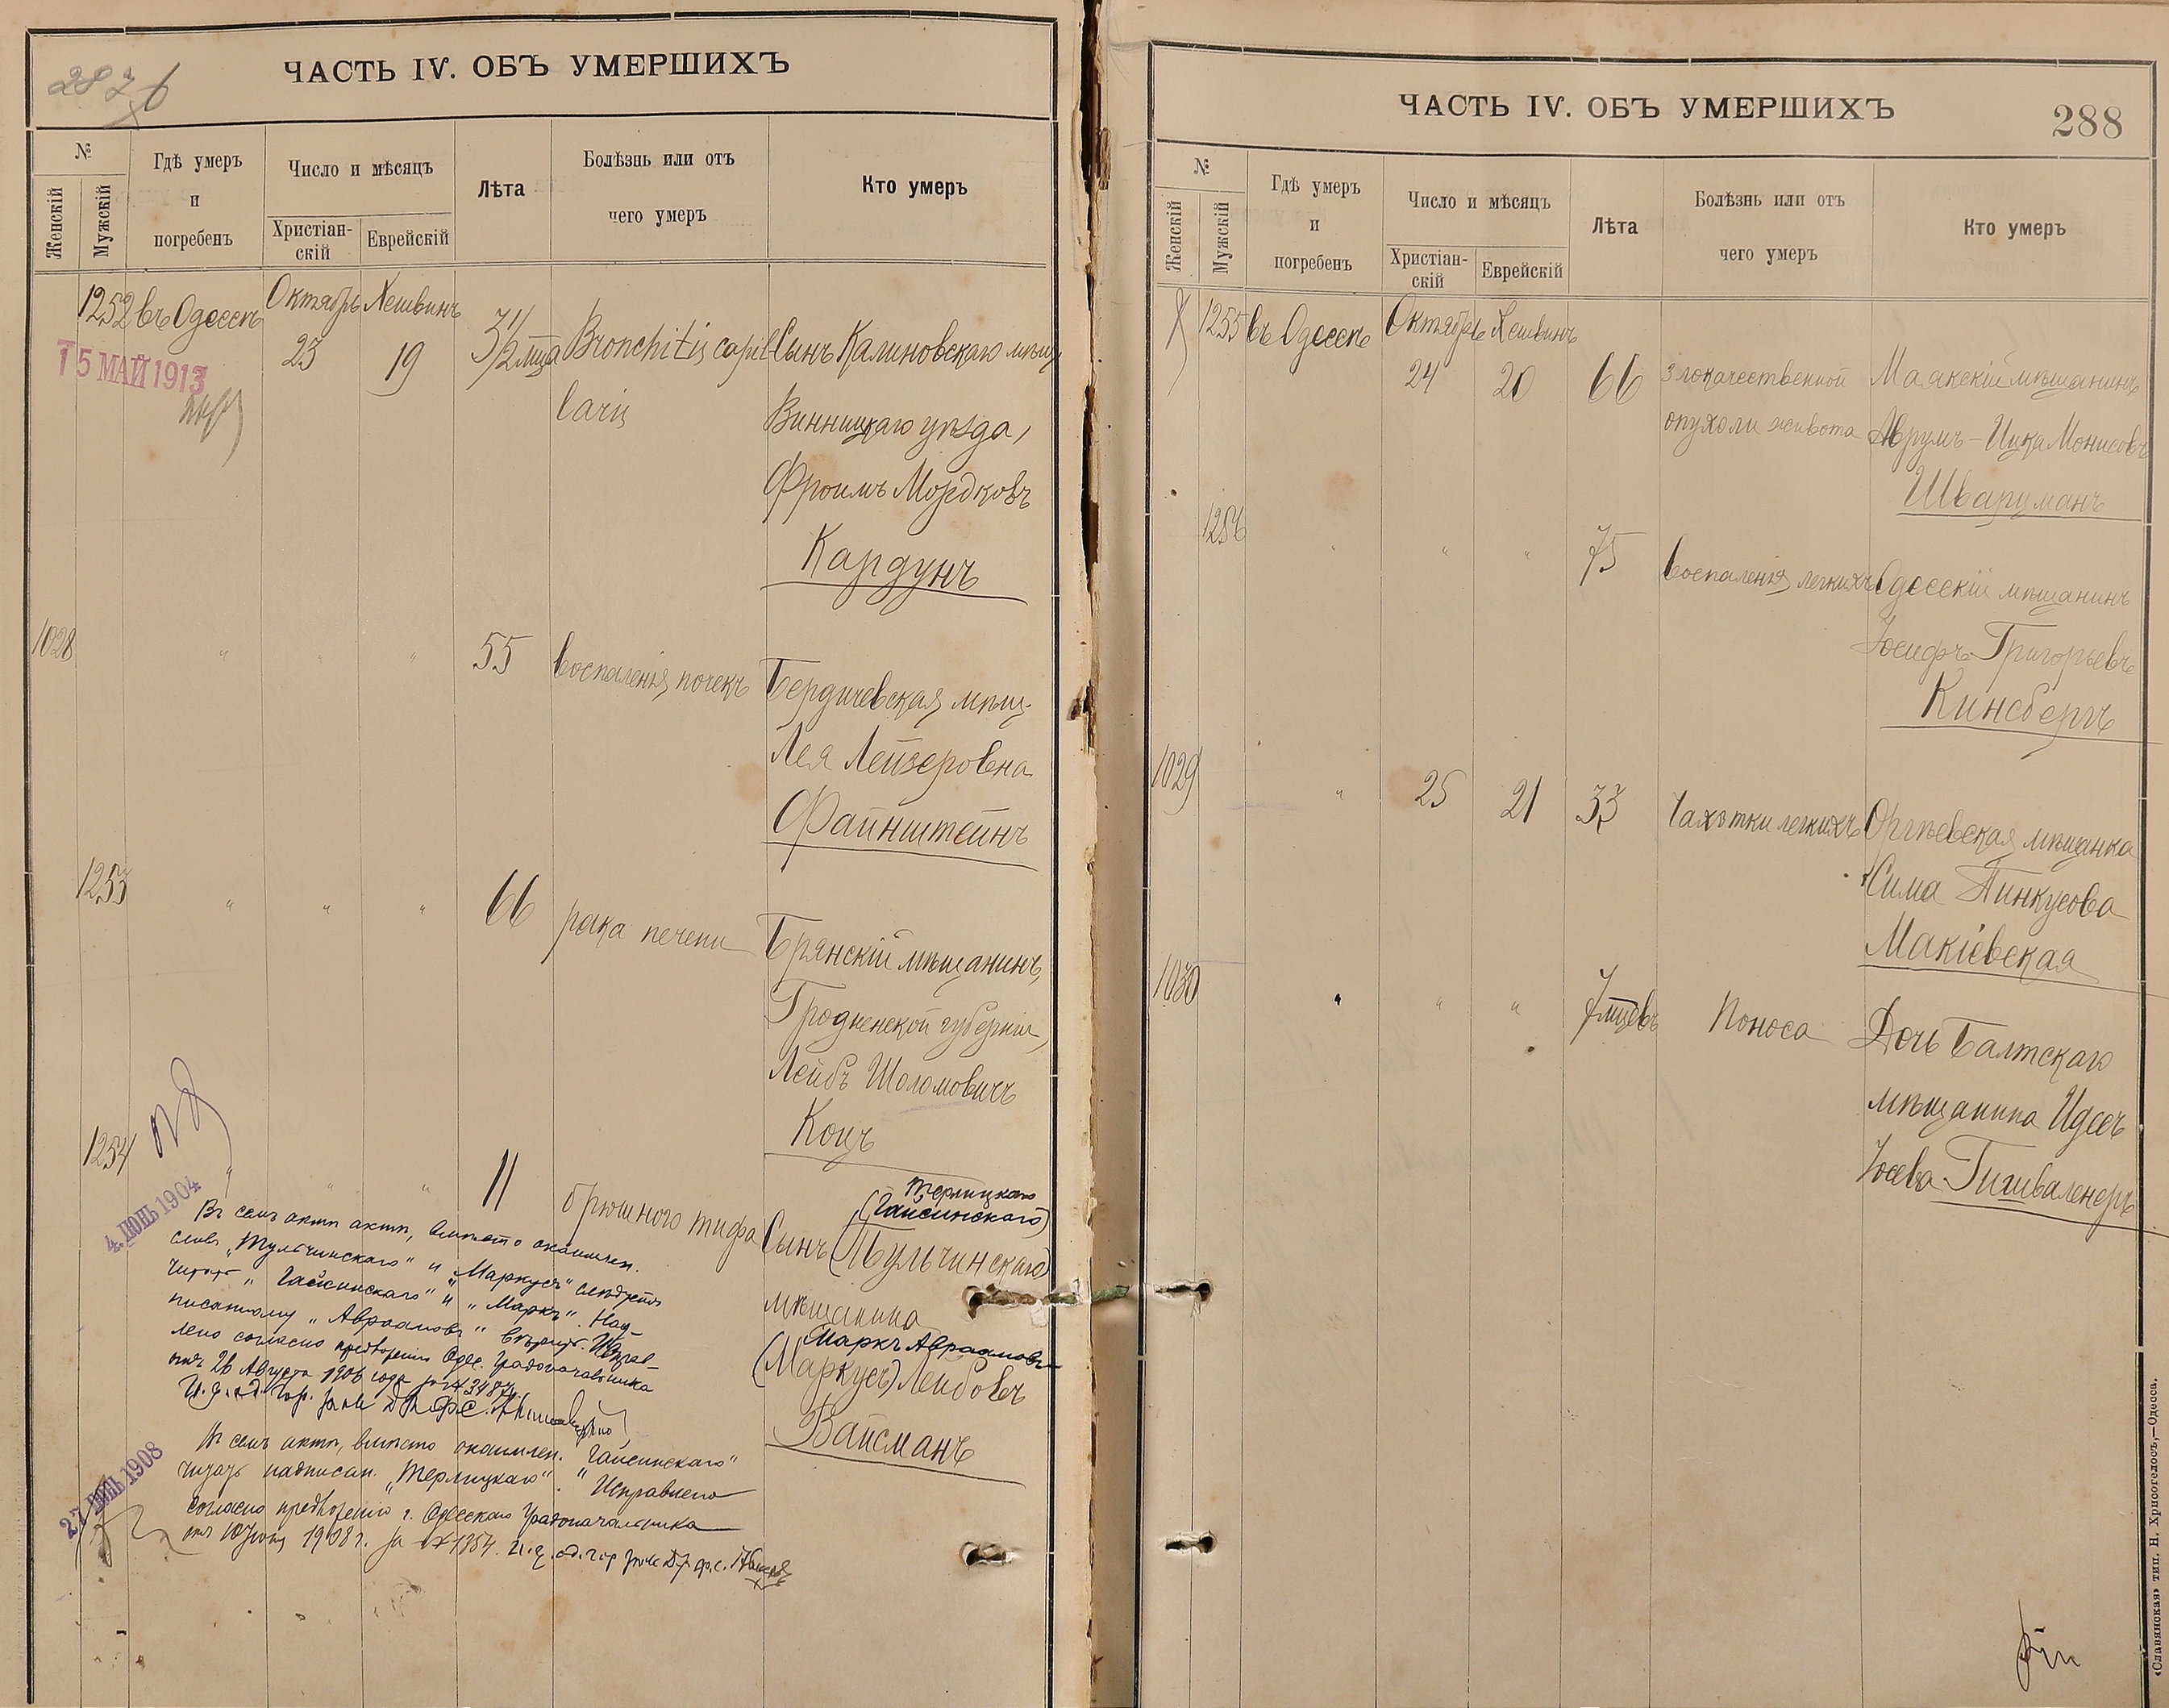 ЧАСТЬ IV. ОБЪ УМЕРШИХЪ
№
Женскій
Мужскій
Гдѣ умеръ
и
погребенъ
Число и мѣсяцъ
Христіан-
скій
Еврейскій
Лѣта
Болѣзнь или отъ
чего умеръ
Кто умеръ
1252 въ Одессѣ Октябрь Хешвинъ
23 19 3 1/2 мца Bronchitis capil Сынъ Калиновскаго мѣщ
laris
Винницкаго уѣзда,
Фроимъ Мордковъ
Кардунъ
15 МАЙ 1913
1028 " " " 55 воспаленія почекъ Бердичевская мѣщ.
Лея Лейзеровна
Файнштейнъ
1253 " " " 66 рака печени Брянскій мѣщанинъ,
Гродненской губерніи,
Лейбъ Шоломовичъ
Коцъ
1254 " " " 11 брюшного тифа
Терлицкаго
(Гайсинскаго)
Сынъ (Тульчинскаго)
мѣщанина
Маркъ Авраамовъ
(Маркусъ) Лейбовъ
Вайсманъ
4. ІЮНЬ 1904
Въ семъ актѣ актѣ, вмѣсто окаймлен.
словъ „Тульчинскаго" и „Маркусъ" слѣдуетъ
читать „Гайсинскаго" и „Маркъ". Над-
писанному „Авраамовъ" вѣрить. Исправ-
лено согласно предложенію Одес. Градоначальника
отъ 26 Августа 1906 года за № 3487.
Въ семъ актѣ, вмѣсто окаймлен. „Гайсинскаго"
читать надписан. „Терлицкаго". Исправлено
согласно предложенію г. Одесскаго Градоначальника
отъ 10 Іюня 1908 г. за № 1354.
27 ІЮНЬ 1908
ЧАСТЬ IV. ОБЪ УМЕРШИХЪ
288
№
Женскій
Мужскій
Гдѣ умеръ
и
погребенъ
Число и мѣсяцъ
Христіан-
скій
Еврейскій
Лѣта
Болѣзнь или отъ
чего умеръ
Кто умеръ
1255 въ Одессѣ Октябрь Хешвинъ
24 20 66 злокачественной Маякскій мѣщанинъ
опухоли живота Аврумъ-Ицка Монисовъ
Шварцманъ
1256 " " " 75 воспаленія легкихъ Одесскій мѣщанинъ
Іосифъ Григорьевъ
Кинсбергъ
1029 " 25 21 33 Чахотки легкихъ Оргѣевская мѣщанка
Сима Пинкусова
Макіевская
1030 " " " 7 мцевъ Поноса Дочь Балтскаго
мѣщанина Идесъ
Іосева Гишваленеръ
«Славянская» тип. Н. Хрисогелосъ,—Одесса.